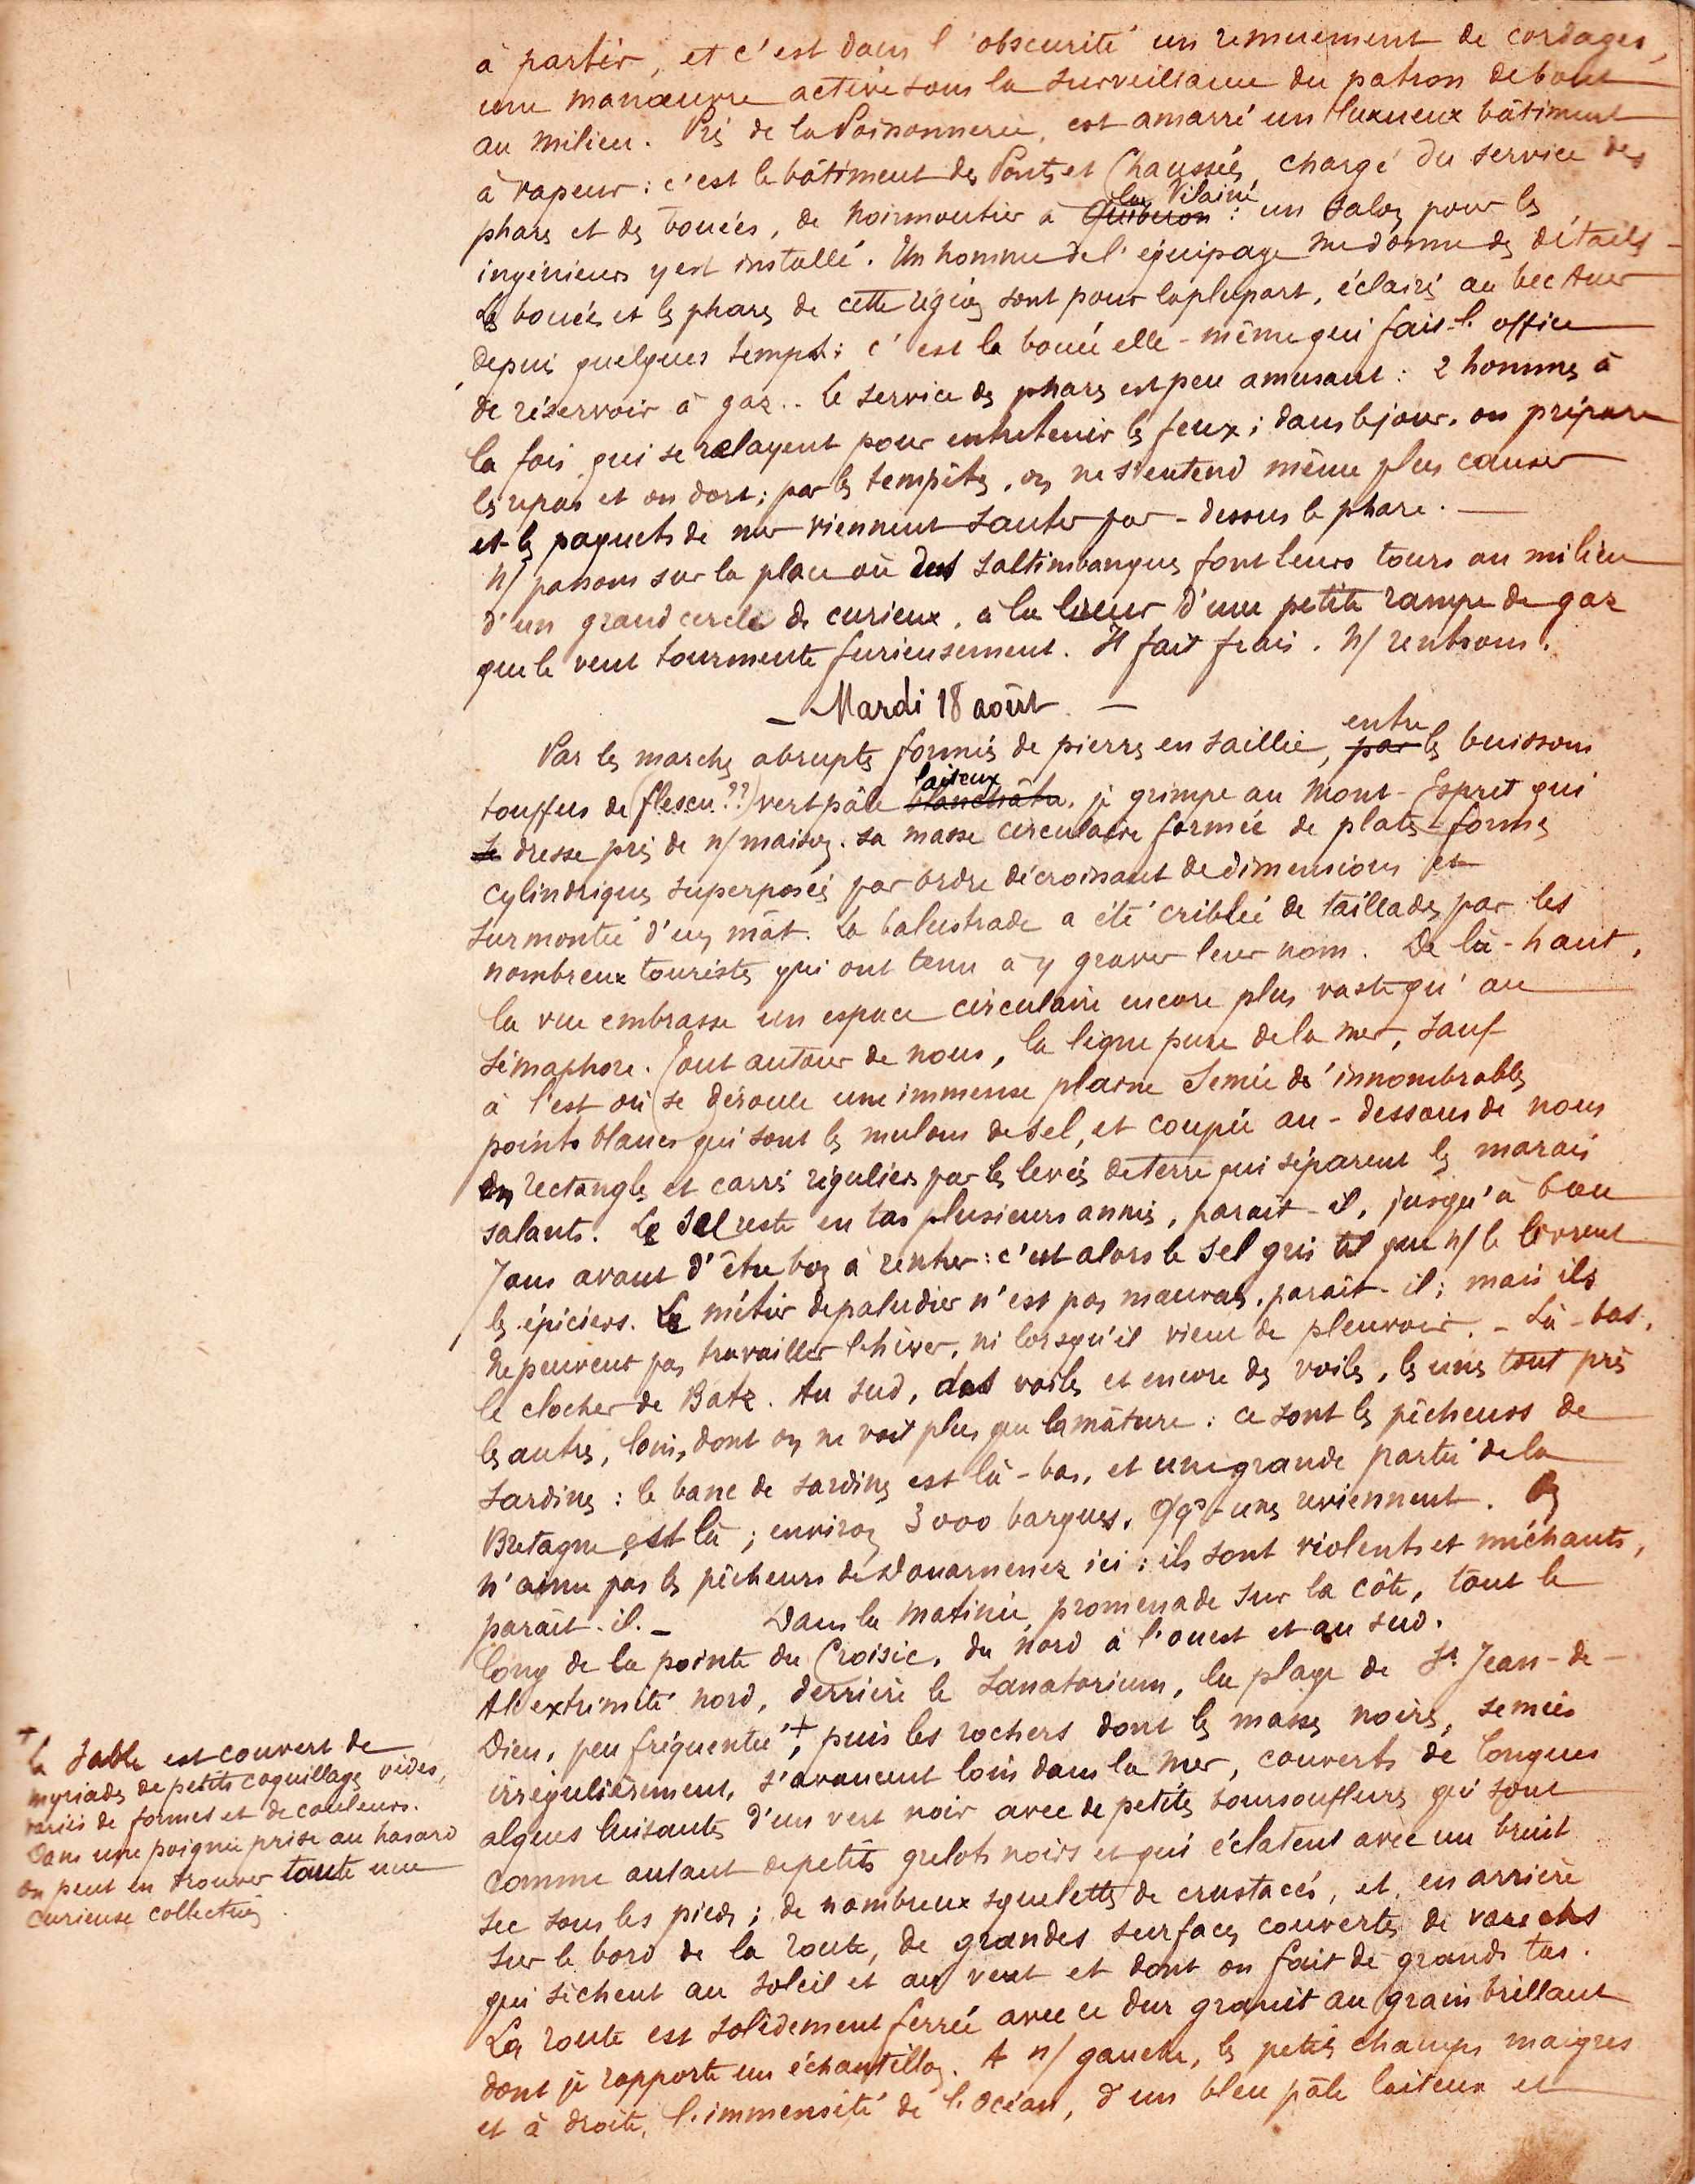 à partir, et c'est dans l'obscurité un remuement de cordages,
une manœuvre active sous la surveillance du patron debout
au milieu. Près de la Poissonnerie, est amarré un luxueux bâtiment
à vapeur : c'est le bâtiment des Ponts et Chaussées, chargé du service des
phares et des bouées, de Noirmoutier à Quiberon la Vilaine : un salon pour les
ingénieurs y est installé. Un homme de l'équipage me donne des détails -
Les bouées et les phares de cette région sont pour la plupart, éclairés au bec Auer
depuis quelques temps : c'est la bouée elle-même qui fait l'office
de réservoir à gaz.. Le service des phares est peu amusant : 2 hommes à
la fois qui se relayent pour entretenir les feux ; dans le jour, on prépare
les repas et on dort ; par les tempêtes, on ne s'entend même plus causer
et les paquets de mer viennent sauter par-dessus le phare. —
N/ passons sur la place où des saltimbanques font leurs tours au milieu
d'un grand cercle de curieux, à la lueur d'une petite rampe de gaz
que le vent tourmente furieusement. Il fait frais. N/ rentrons.
- Mardi 18 août. -
Par les marches abruptes formées de pierres en saillie, par entre les buissons
touffus de (flescu ??) vert pâle blanchâtre laiteux, je grimpe au Mont-Esprit qui
se dresse près de n/ maison. sa masse circulaire formée de plates-formes
cylindriques superposées par ordre décroissant de dimensions et
surmontée d'un mât. La balustrade a été criblée de taillades par les
nombreux touristes qui ont tenu à y graver leur nom. De là-haut,
la vue embrasse un espace circulaire encore plus vaste qu'au
sémaphore. Tout autour de nous, la ligne pure de la mer, sauf
à l'est où se déroule une immense plaine semée d'innombrables
points blancs qui sont les mulons de sel, et coupée au-dessous de nous
en rectangles et carrés réguliers par les levées de terre qui séparent les marais
salants. Le sel reste en tas plusieurs années, paraît-il, jusqu'à 6 ou
7 ans avant d'être bon à rentrer : c'est alors le sel gris tel que n/ le livrent
les épiciers. Le métier de paludier n'est pas mauvais, paraît-il ; mais ils
ne peuvent pas travailler l'hiver, ni lorsqu'il vient de pleuvoir. - Là-bas,
le clocher de Batz. Au sud, des voiles et encore des voiles, les unes tout près
les autres, loin, dont on ne voit plus que la mâture : ce sont les pêcheurs de
sardines : le banc de sardines est là-bas, et une grande partie de la
Bretagne est là ; environ 3000 barques. Qqs-unes reviennent. On
n'aime pas les pêcheurs de Douarnenez ici : ils sont violents et méchants,
paraît-il. - Dans la matinée, promenade sur la côte, tout le
long de la pointe du Croisic, du nord à l'ouest et au sud.
A l'extrémité nord, derrière le Sanatorium, la plage de St Jean-de-
Dieu, peu fréquentée +, puis les rochers dont les masses noires, semées
irrégulièrement, s'avancent loin dans la mer, couverts de longues
algues luisantes d'un vert noir avec de petites boursouflures qui sont
comme autant de petits grelots noirs et qui éclatent avec un bruit
sec sous les pieds ; de nombreux squelettes de crustacés, et, en arrière
sur le bord de la route, de grandes surfaces couvertes de varechs
qui sèchent au soleil et au vent et dont on fait de grands tas.
La route est solidement ferrée avec ce dur granit au grain brillant
dont je rapporte un échantillon. A n/ gauche, les petits champs maigres
et à droite, l'immensité de l'Océan, d'un bleu pâle laiteux et
+ Le sable est couvert de
myriades de petits coquillages vides,
variés de formes et de couleurs.
Dans une poignée prise au hasard
on peut en trouver toute une
curieuse collection.